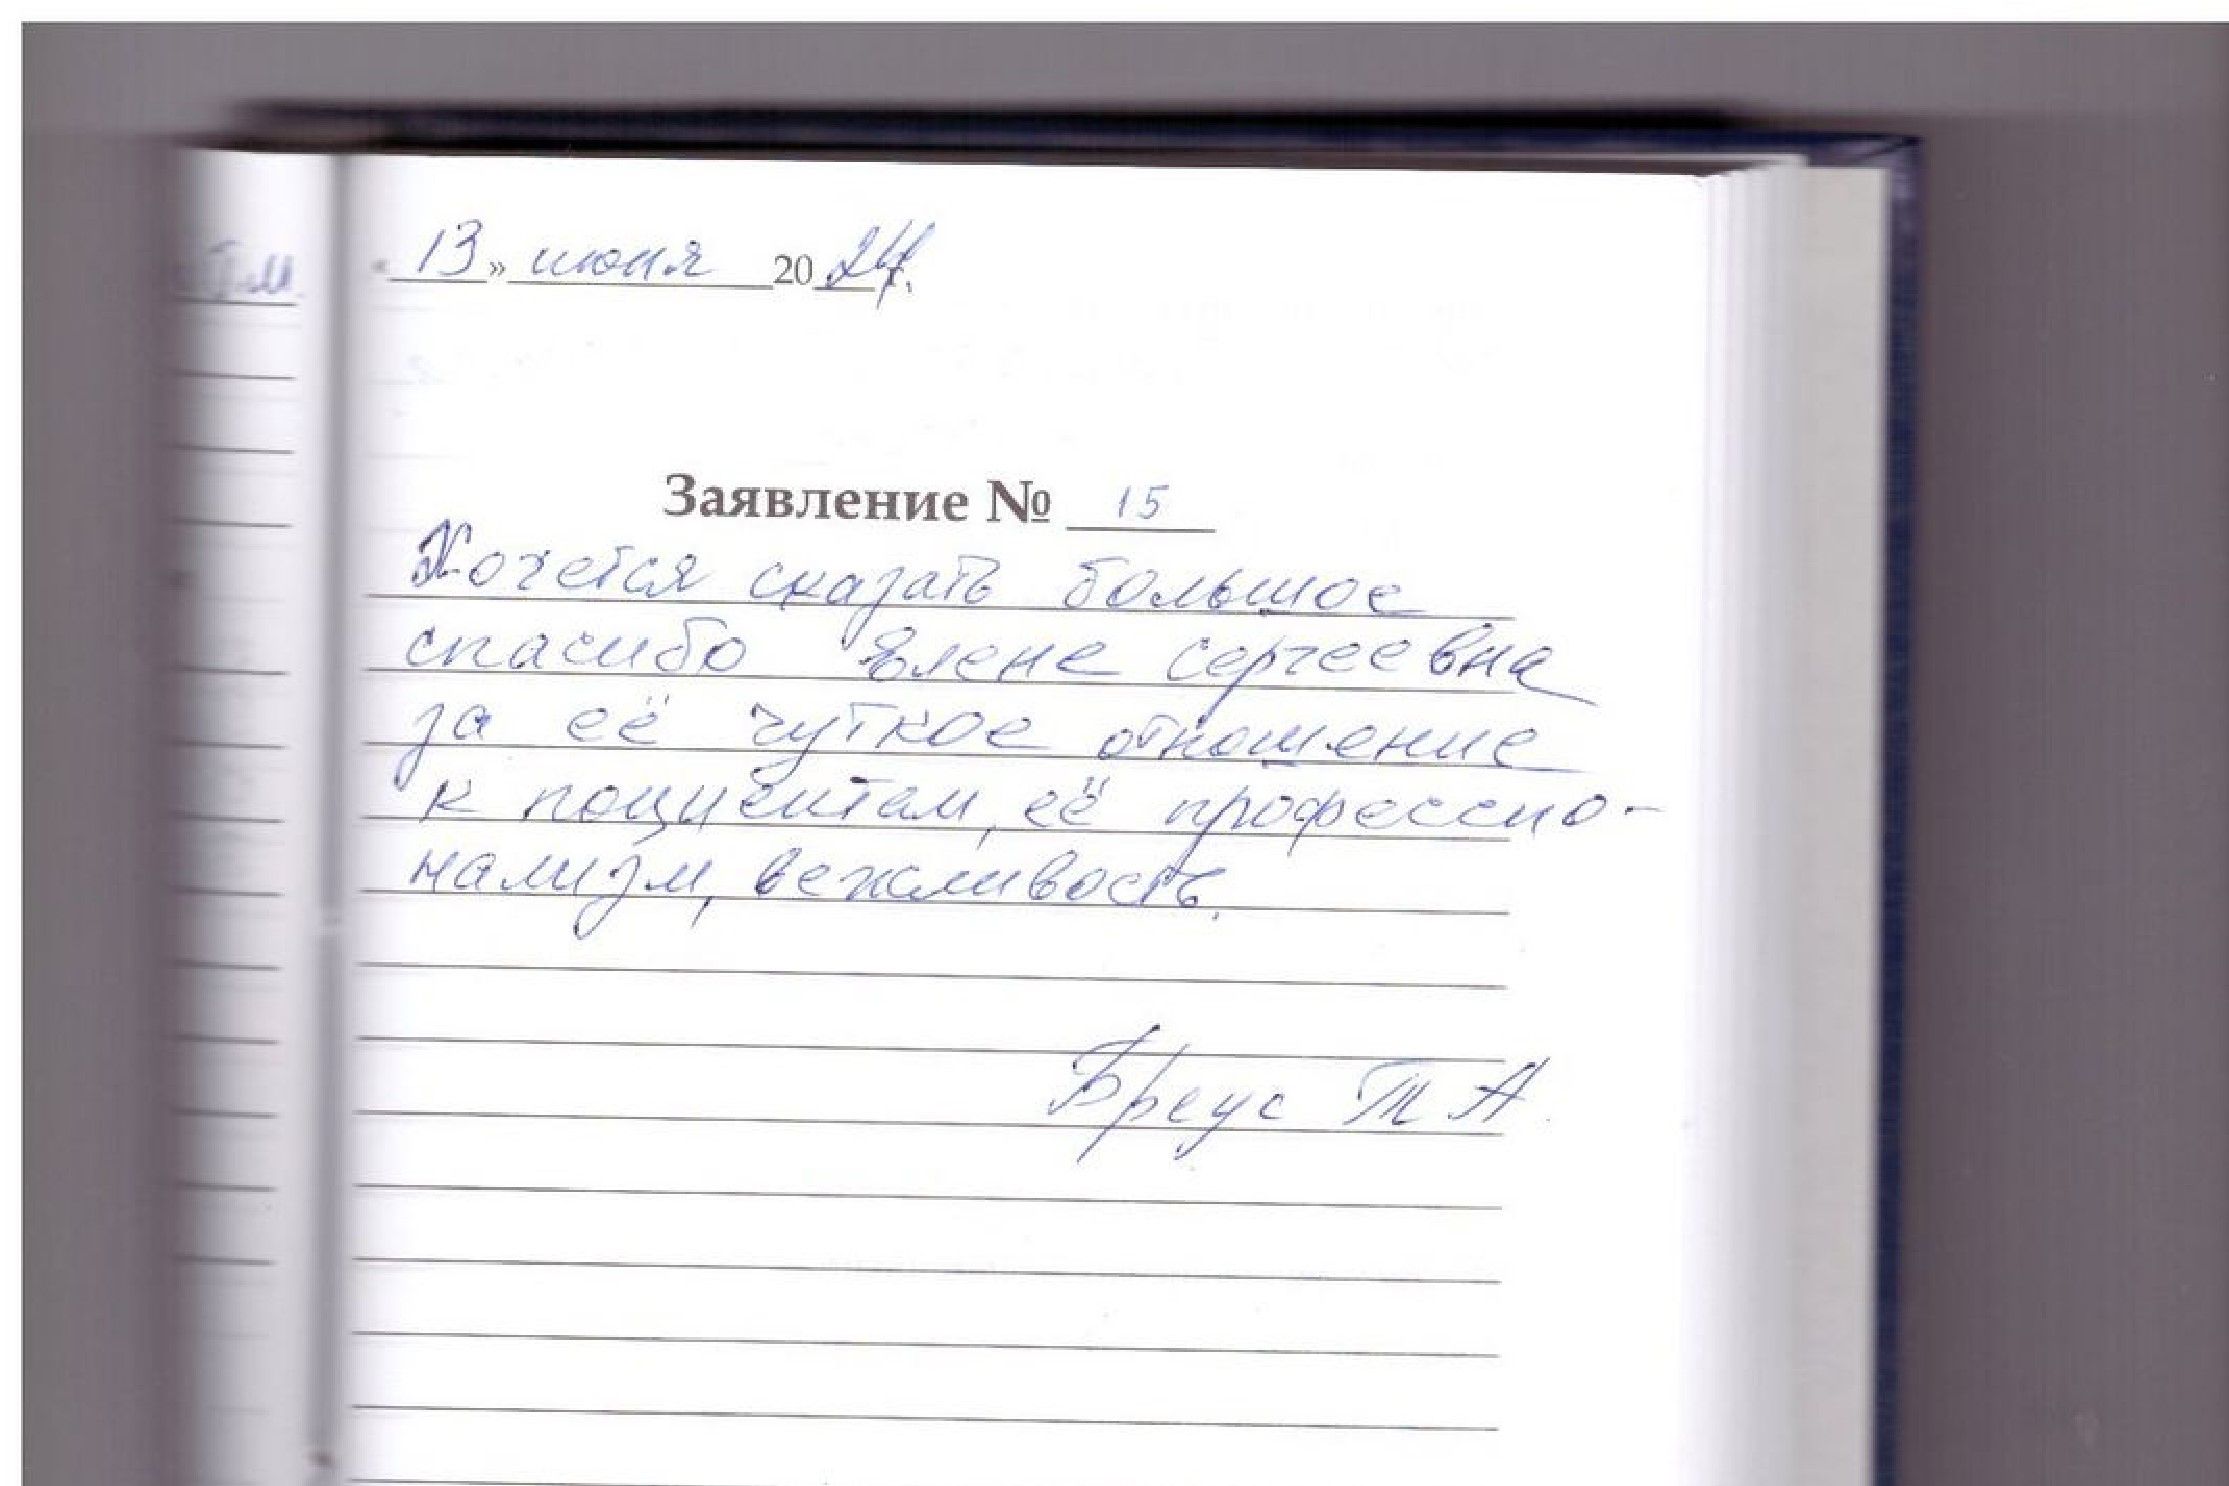 « 13 » июня 2024г.
Заявление № 15
Хочется сказать большое
спасибо Елене сергеевна
за её чуткое отношение
к поциентам, её профессио-
нализм, вежливость.
Бреус Т А.